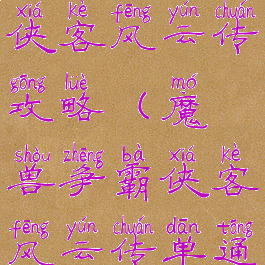 xiá kè fēng yún chuán
侠客风云传
gōng lüè mó
攻略(魔
shòu zhēng bà xiá kè
兽争霸侠客
fēng yún chuán dān tōng
风云传单通